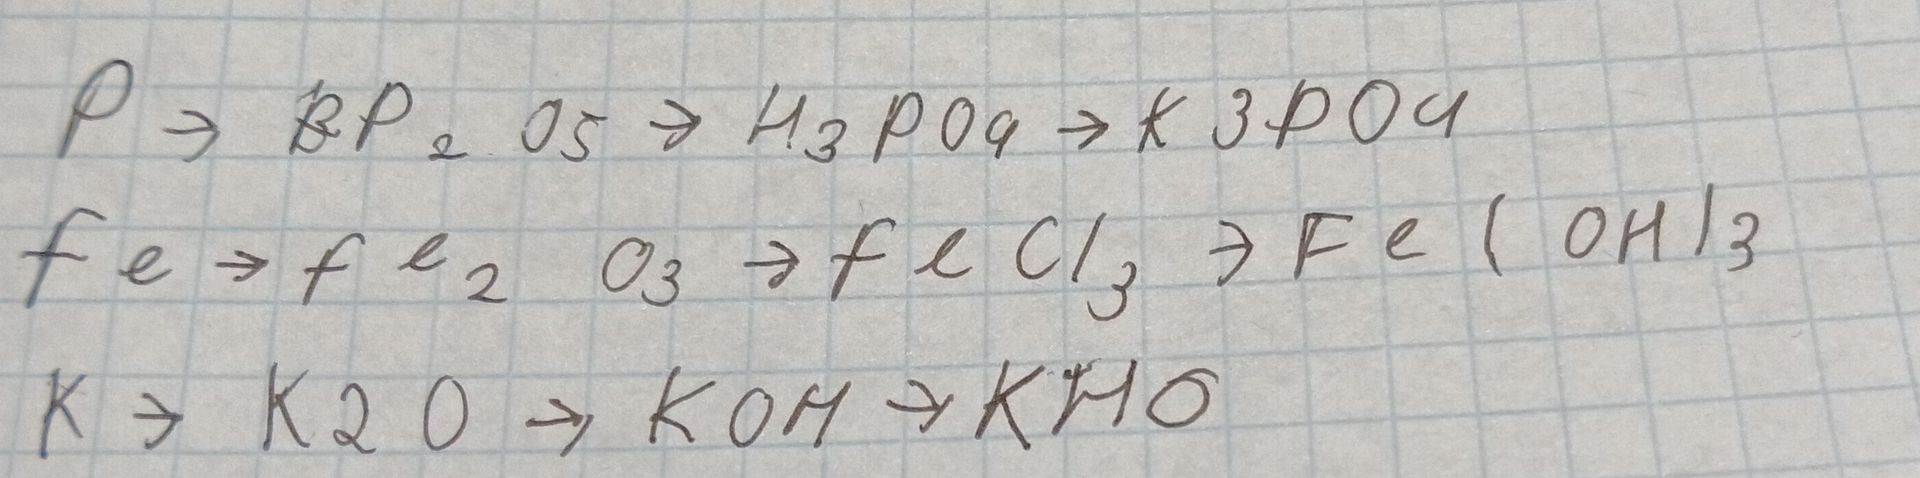 P → P₂O₅ → H₃PO₄ → K3PO4
Fe → Fe₂O₃ → FeCl₃ → Fe(OH)₃
K → K2O → KOH → KHO